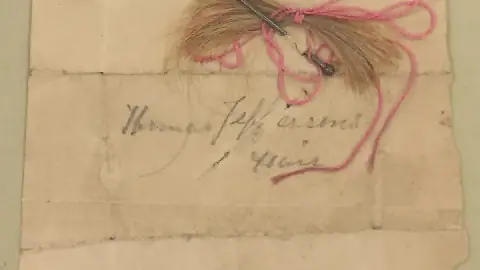 Thomas Jeffersons
Hair